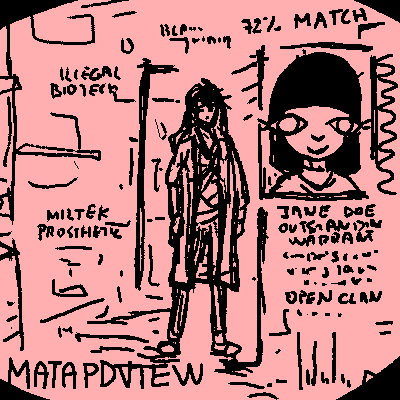 72% MATCH
ILLEGAL
BIOTECH
MILTEK
PROSTHETIC
JANE DOE
OUTSTANDIN
WARRANT
OPEN CLAN
MATAPDVTEW